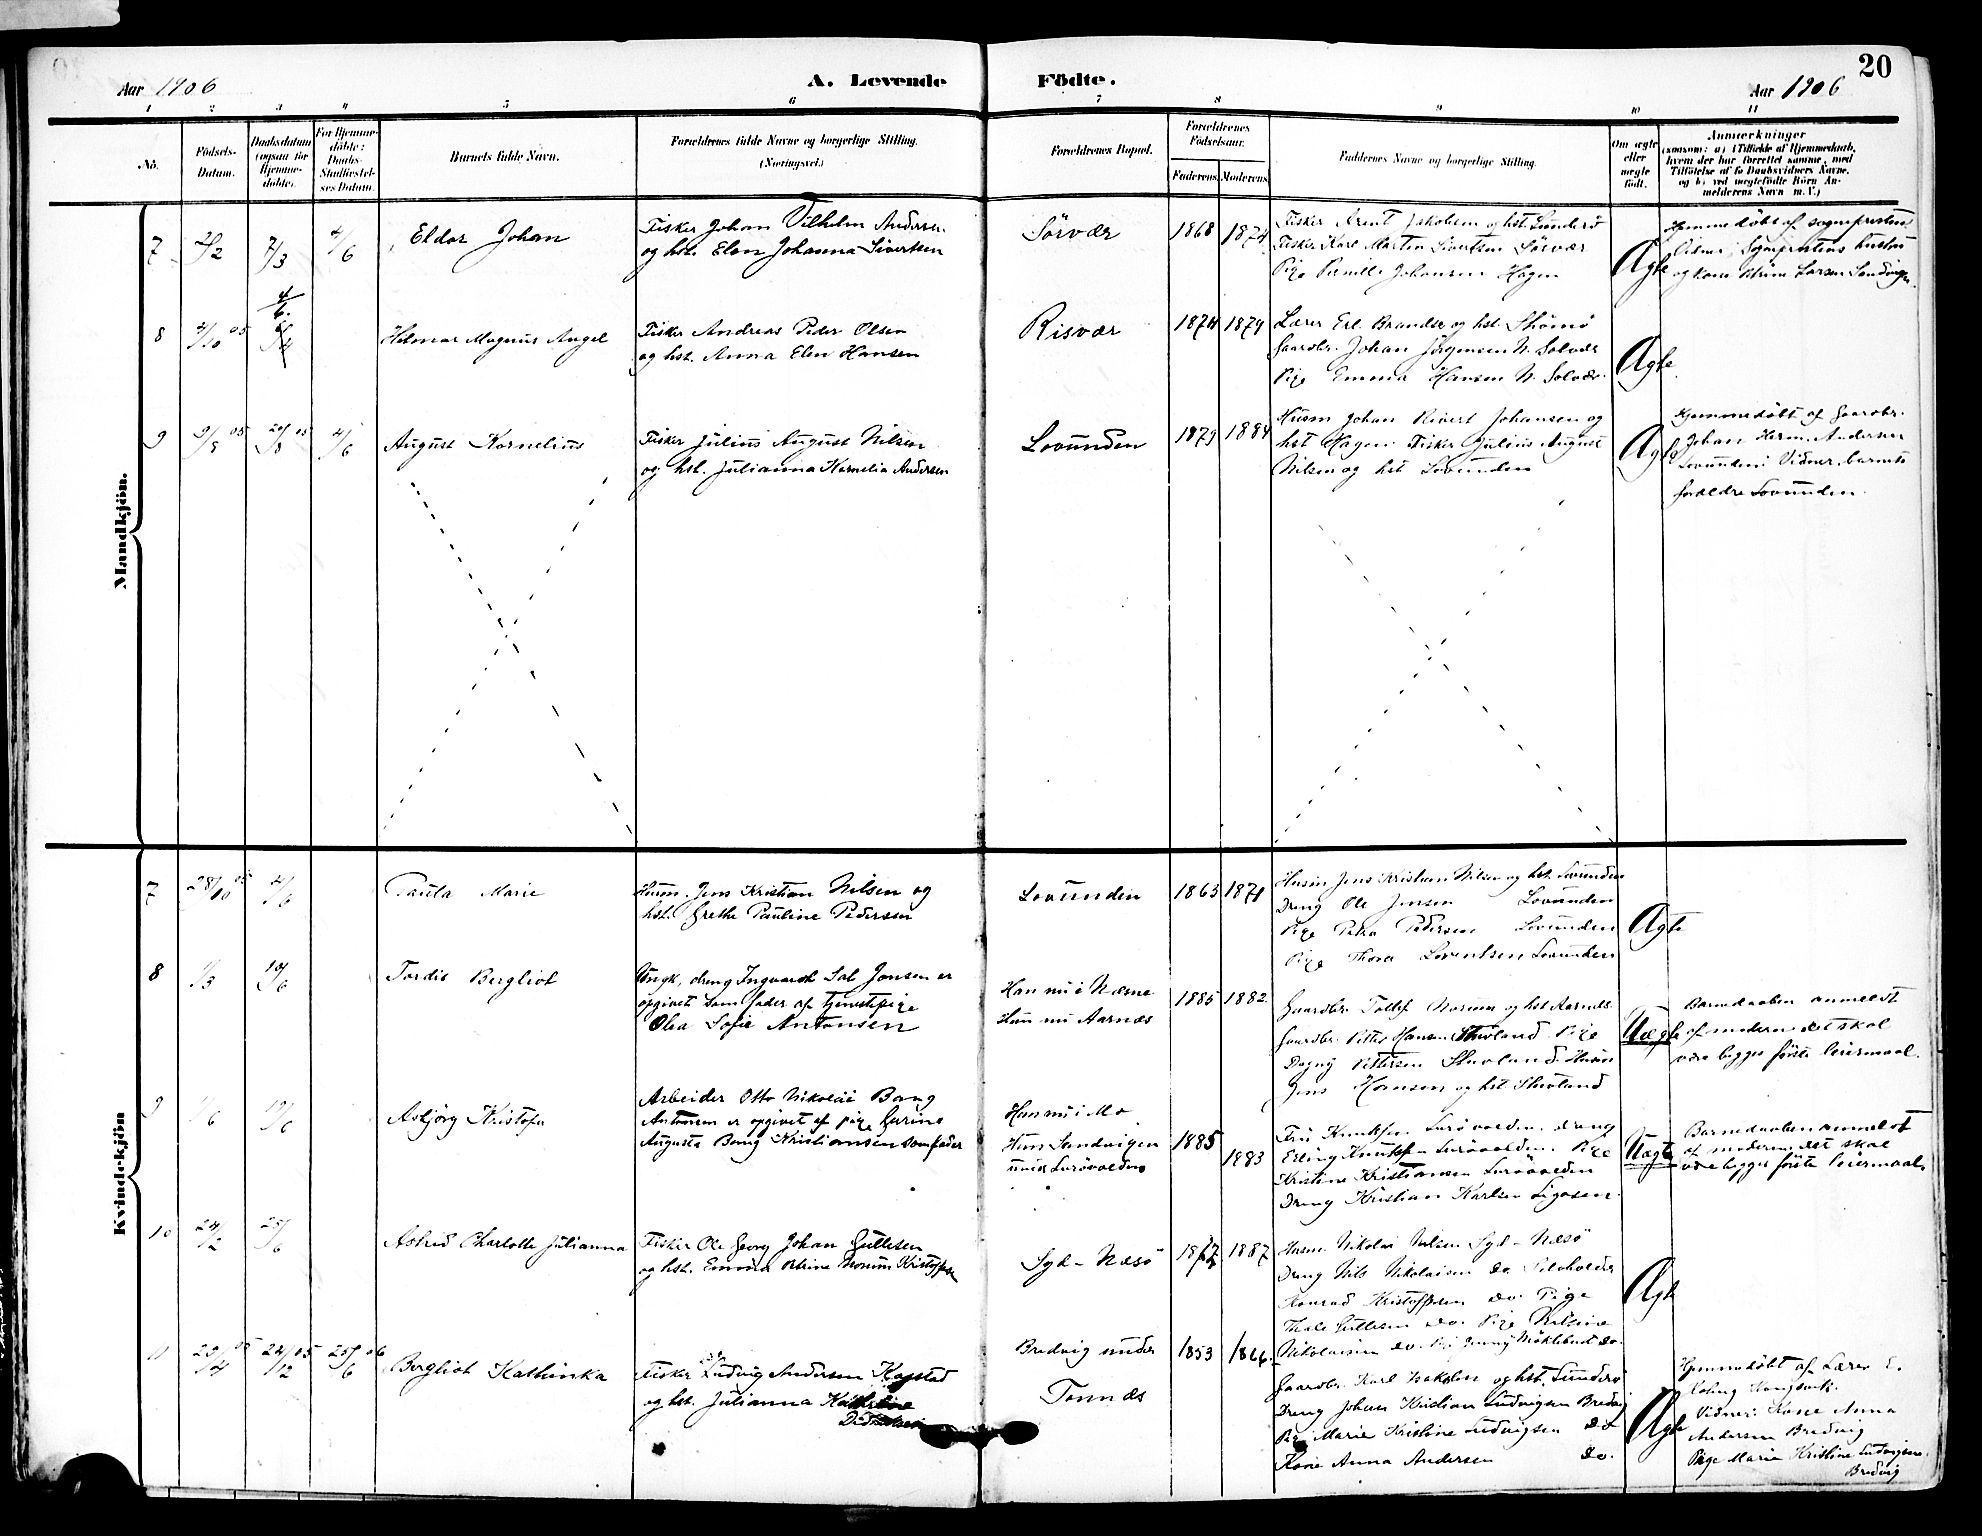 20
Aar 1906
A. Levende Födte.
Aar 1906
1 2 3 4 5 6 7 8 9 10 11
No.
Födsels-Datum.
Daabsdatum (ogsaa for Hjemme-döbte).
For Hjemme-döbte: Daabs-Stadfæstel-ses Datum.
Barnets fulde Navn.
Forældrenes fulde Navne og borgerlige Stilling. (Næringsvei.)
Forældrenes Bopæl.
Forældrenes Födselsaar.
Faderens. Moderens.
Faddernes Navne og borgerlige Stilling.
Om ægte eller uægte födt.
Anmærkninger
(saasom: a) i Tilfælde af Hjemmedaab, hvem der har forrettet samme, med Tilföielse af to Daabsvidners Navne, og b) ved uægtefödte Börn An-melderens Navn m. V.)
Mandkjön.
7 2/2 7/3 4/6 Eldor Johan
Fisker Johan Vilhelm Andersen
og hst. Elen Johanna Sivertsen
Sörvær 1868 1874
Fisker Arent Jakobsen og hst. Sunderö
Fisker Karl Martin Sivertsen Sörvær
Pige Pernille Johansen Hagen
Ægte
Hjemmedöbt af sogneprestens
Sogneprestens hustru
og kone Larsen Sandvigen
8 4/10 05 4/6 Hilmar Magnus Angel
Fisker Andreas Peder Olsen
og hst. Anna Elen Hansen
Risvær 1874 1879
Lærer Erl. Brandsr og hst. Skömö
Gaardbr. Johan Jörgensen N. Solvær
Pige Emma Hansen N. Solvær.
Ægte
9 9/5 05 20/8 05 4/6 August Kornelius
Fisker Julius August Nilsen
og hst. Julianna Kornelia Andersen
Lovunden 1879 1884
Husm Johan Rivert Johansen og
hst Hagen. Fisker Julius August
Nilsen og hst Lovunden
Ægte
Hjemmedöbt af Gaardbr.
Johan Herm. Andersen
Lovunden. Vidner barnets
foreldre Lovunden.
Kvindekjön
7 28/10 05 4/6 Paula Marie
Husm. Jens Kristian Nilsen og
hst. Grethe Pauline Pedersen
Lovunden 1863 1871
Husm Jens Kristian Nilsen og hst. Lovunden
Dreng Ole Jensen Lovunden
Pige Petra Pedersen Lovunden
Pige Thora Lorentsen Lovunden
Ægte
8 1/3 10/6 Tordis Bergliot
Ungk, dreng Ingvardt Sal Jensen er
opgivet som fader af tjenestpige
Olea Sofie Antonsen
Han nu i Næsne
Hun nu Aarnæs
1885 1882
Gaardbr. Tollef Norum og hst Aarnæs
Gaardbr. Petter Hansen Stuvland. Pige
Dagny Pettersen Stuvland. Husm
Jens Hansen og hst Stuvland
Uægte
Barnedaaben anmeldt
af moderen det skal
være begges förste leiermaal.
9 1/6 10/6 Asbjörg Kristofa
Arbeider Otto Nikolai Bang
Antonsen er opgivet af pige Gurine
Augusta Bang Kristiansen som fader
Han nu i Mo
Hun Sandvigen
nu i Lurövolden
1885 1883
Fru Knutsen Luröwolden. dreng
Erling Knutsen Luröwolden. Pige
Kristine Kristiansen Luröwolden
Dreng Kristian Karlsen Sigosen
Uægte
Barnedaaben anmeldt
af moderen det skal
være begges förste leiermaal.
10 24/2 25/6 Astrid Charlotte Julianna
Fisker Ole Georg Johan Gullesen
og hst. Emma Petrine Norum Kristoffersen
Syd-Næsö 1887
Husm Nikolai Nilsen Syd-Næsö
Dreng Nils Nikolaisen do
Konrad Kristoffersen do. Pige
Thale Gullesen do. Pige
Nikolaisen do. Pi. Jenny Möklebust do.
Ægte
11 23/4 05 24/12 05 25/6 06 Bergliot Kathinka
Fisker Ludvig Andersen Kopstad
og hst. Julianna Kathrine
Bredvig under
Tonnæs
1853 1866
Gaardbr. Karl Isaksen og hst. Sunderö
Dreng Johan Kristian Ludvigsen Bredvig
Pige Marie Kristine Ludvigsen do
Kone Anna Andersen do.
Ægte
Hjemmedöbt af Lærer E.
Kongsvik.
Vidner: Kone Anna
Andersen Bredvig
Pige Marie Kristine Ludvigsen.
Bredvig